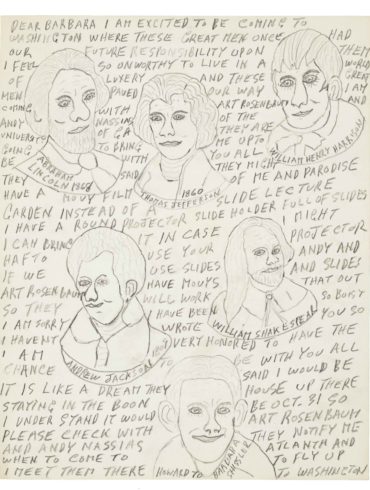 DEAR BARBARA I AM EXCITED TO BE COMING TO
WASHINGTON WHERE THESE GREAT MEN ONCE HAD
OUR FUTURE RESPONSIBILITY UPON THEM
I FEEL SO ONWORTHY TO LIVE IN A WORLD
OF LUXERY AND THESE GREAT
MEN PAVED OUR WAY I AM
COMING WITH ART ROSENBAUM AND
ANDY NASSIAS OF THE
UNIVERSITY OF GA THEY ARE
GOING TO BRING ME UP TO
BE WITH YOU ALL WILLIAM HENRY HARRISON
ABRAHAM
LINCOLN
THEY SAID THEY MIGHT
THOMAS JEFFERSON
OF ME AND PARODISE
HAVE A MOUY FILM SLIDE LECTURE
GARDEN INSTEAD OF A
I HAVE A ROUND PROJECTOR SLIDE HOLDER FULL OF SLIDES
I CAN BRING IT IN CASE I MIGHT
HAF TO USE YOUR PROJECTOR
IF WE USE SLIDES ANDY AND
ART ROSENBAUM HAVE MOUYS AND SLIDES
SO THEY WILL WORK THAT OUT
I AM SORRY I HAVE BEEN SO BUSY
I HAVENT WROTE YOU SO
WILLIAM SHAKESPEAR
I AM VERY HONORED TO HAVE THE
CHANCE TO BE WITH YOU ALL
ANDREW
IT IS LIKE A DREAM THEY SAID I WOULD BE
STAYING IN THE BOON HOUSE UP THERE
I UNDER STAND IT WOULD BE OCT. 31 SO
PLEASE CHECK WITH ART ROSENBAUM
AND ANDY NASSIAS THEY NOTIFY ME
WHEN TO COME TO ATLANTA AND
I MEET THEM THERE TO FLY UP
HOWARD TO BARBARA
TO WASHINGTON